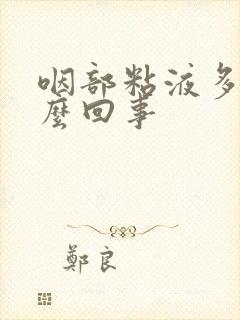 咽部粘液多
麼回事
鄭良